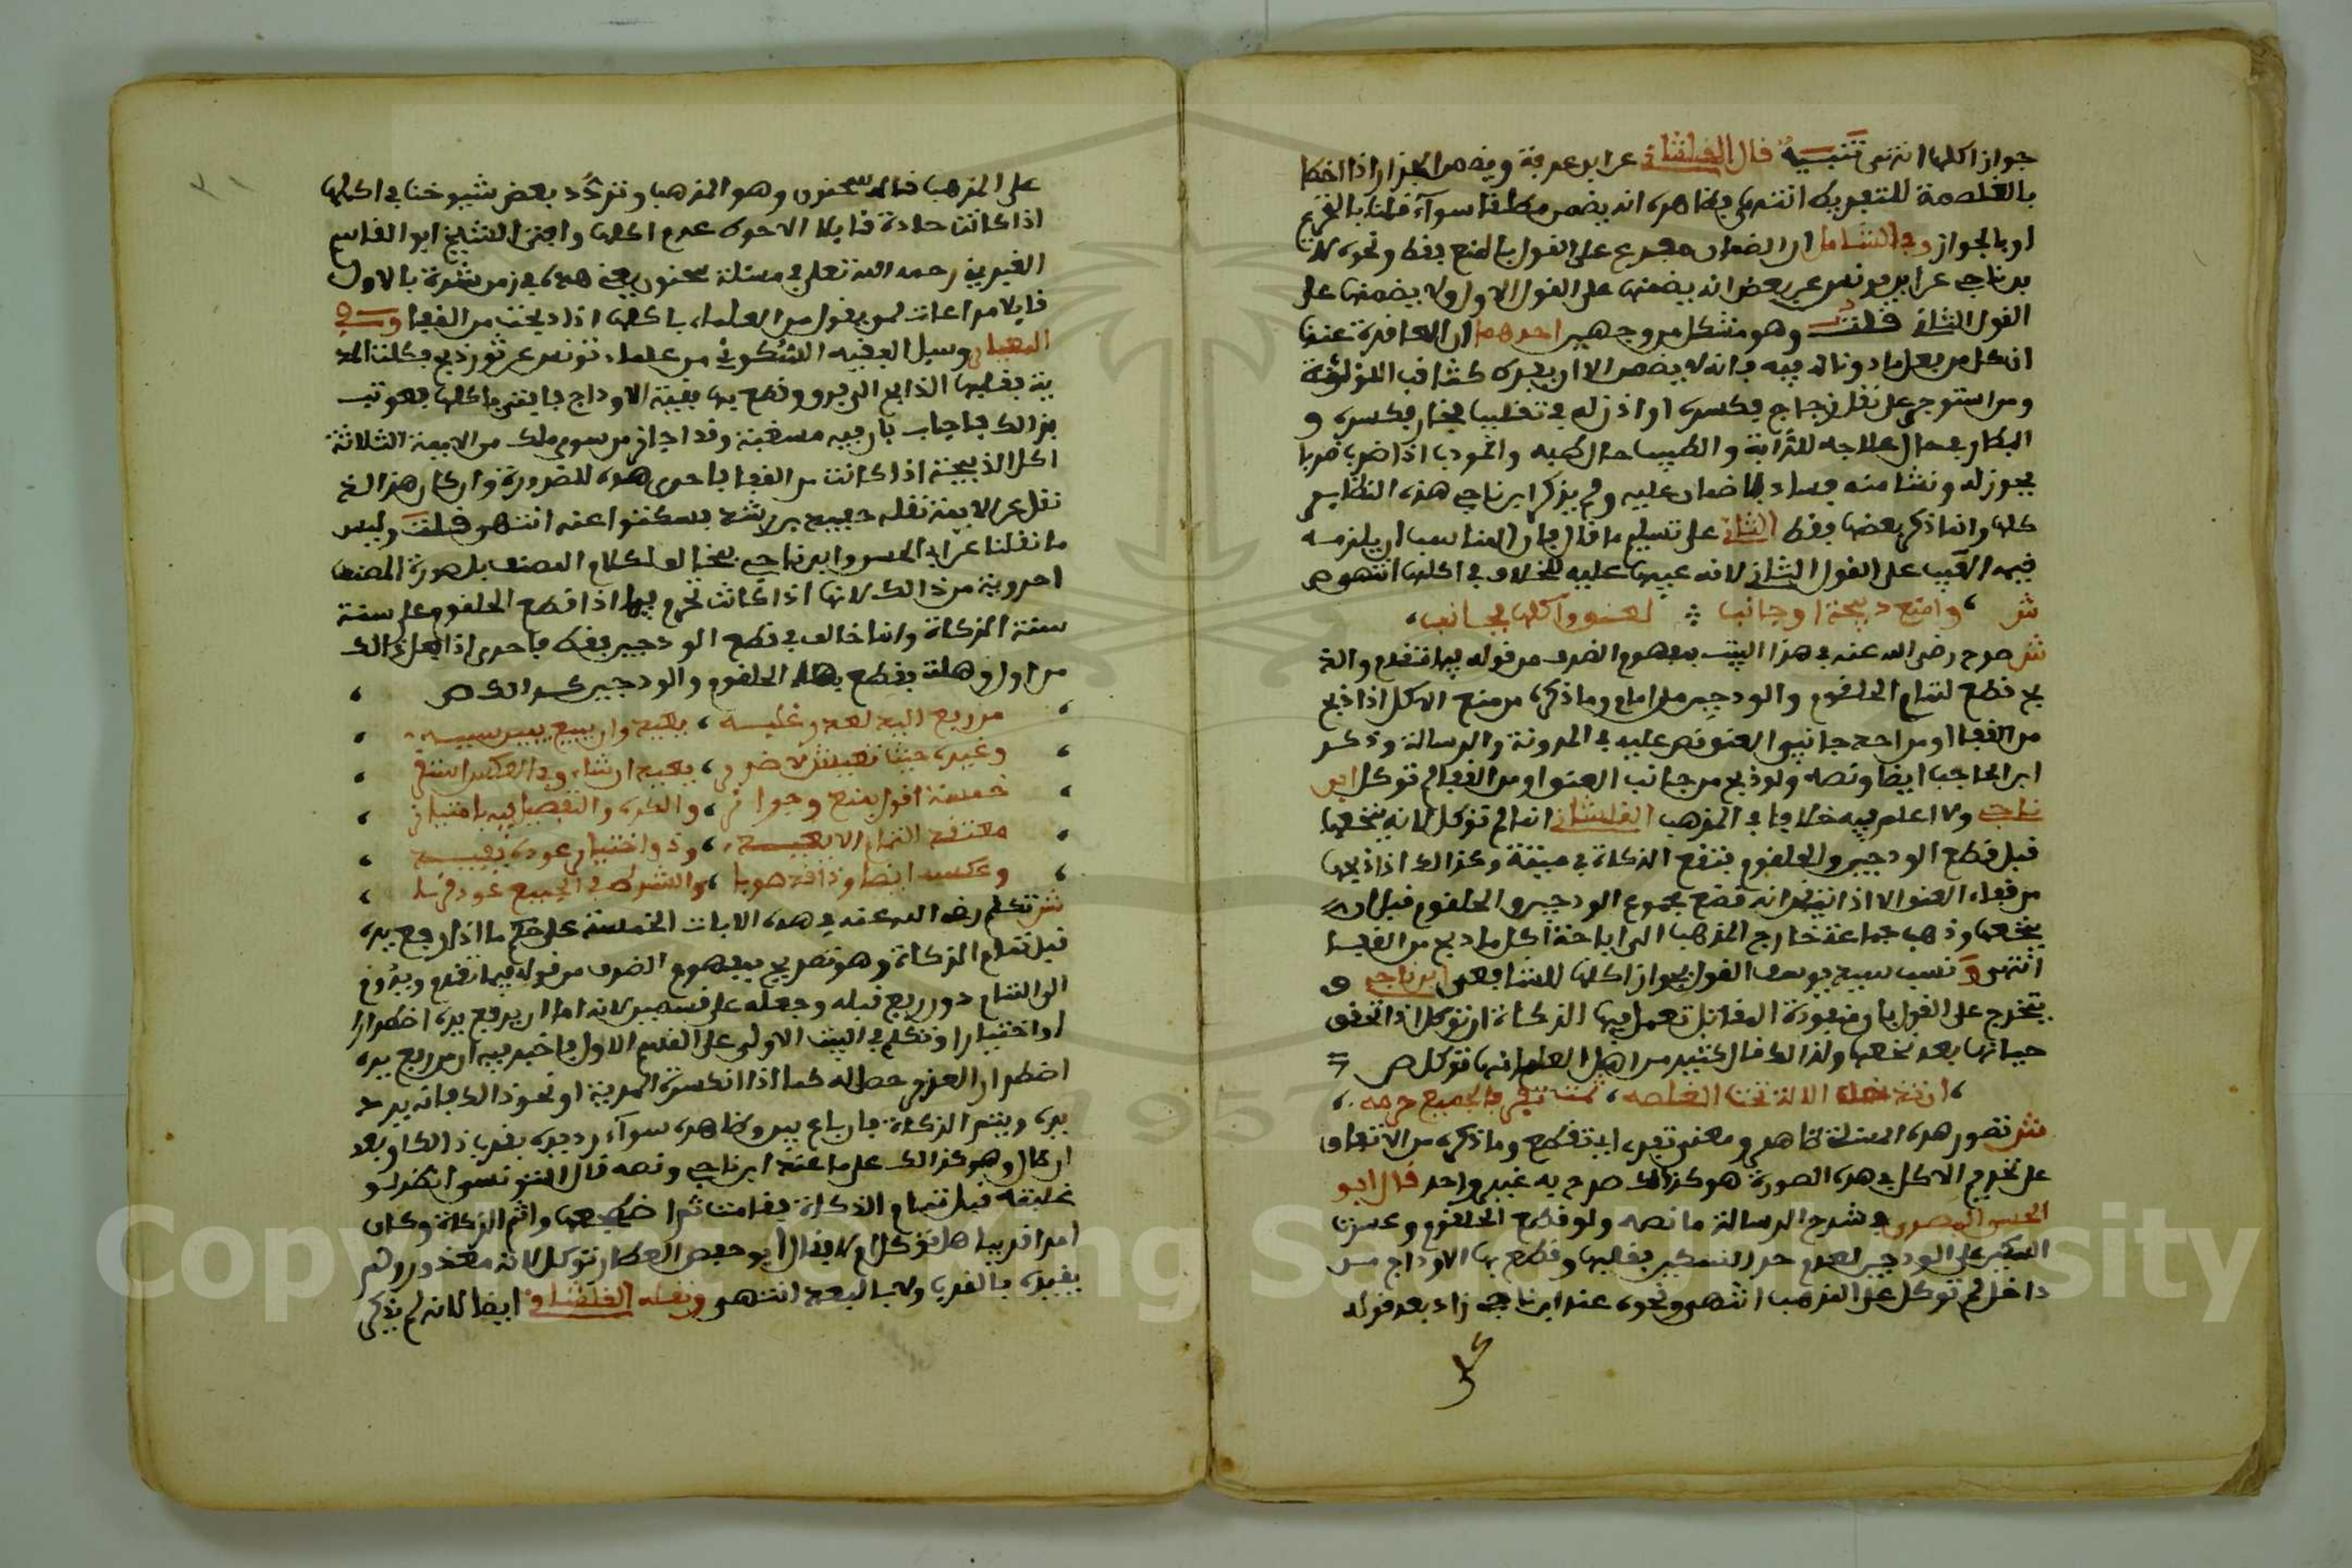 جواز اكلها انتهى تنبيه قال القلشاني عن ابن عرفة ويضمن الجزار اذا اخطا
بالغلصمة للتفريط انتهى وظاهره انه يضمن مطلقا سوآء قلنا بالمنع
او بالجواز وفي الشامل ان الضمان مفرع على القول بالمنع فقط ونحوه لا
بن ناجي عن ابن يونس عن بعض انه يضمنها على القول الاول ولا يضمنها على
القول الثاني قلت وهو مشكل من وجهين احدهما ان القاعدة عندنا
ان كل من فعل ما اذن له فيه فانه لا يضمن الا ان يفرط كثاقب اللؤلؤة
ومن استوجر على نقل زجاج فكسره او اذن له في تقليب فخار فكسره و
البيطار في حال علاجه للدابة والطبيب حال طبه والمودب اذا ضرب ضربا
يجوز له ونشا منه فساد فلا ضمان عليه ولم يذكر ابن ناجي هذه النظاير
كلها وانما ذكر بعضها فقط الثاني على تسليم ما قال فان المناسب ان يلزمه
قيمة العيب على القول الثاني لانه عيبها عليه للخلاف في اكلها انتهى ص
وامنع ذبيحة او جانب لعنق واكلها بجانب
ش صرح رضي الله عنه في هذا البيت بمفهوم الضرف من قوله فيما تقدم والذ
بح قطع لتمام الحلقوم والودجين من امام وما ذكره من منع الاكل اذا ذبح
من القفا او من احد جانبي العنق نص عليه في المدونة والرسالة وذكر
ابن الحاجب ايضا ونصه ولو ذبح من جانب العنق او من القفا لم توكل ابن
ناجي ولا اعلم فيه خلافا في المذهب القلشاني انما لم توكل لانه ينخعها
قبل قطع الودجين والحلقوم فتقع الذكاة في ميتة وكذالك اذا ذبحها
من قفاء العنق الا اذا تيقن انه قطع مجموع الودجين والحلقوم قبل ان
ينخعها وذهب جماعة خارج المذهب الى اباحة اكل ما ذبح من القفا
انتهى ونسب سيد يوسف القول بجواز اكلها للشافعي ابن ناجي و
يتخرج على القول بان منفوذة المقاتل تعمل فيها الذكاة ان توكل اذا تحقق
حياتها بعد نخعها ولذالك قال كثير من اهل العلم انها توكل ص
ان تدخل الالة تحت الغلصمة ثمت تفري فالجميع حرمه
ش تصور هذه المسئلة ظاهر ومعنى تفري اي تقطع وما ذكره من الاتفاق
على تحريم الاكل في هذه الصورة هو كذالك صرح به غير واحد قال ابو
الحسن المصري في شرح الرسالة ما نصه ولو قطع الحلقوم وعسرت
السكين على الودجين لعدم حد السكين فقلبها وقطع بها الاوداج من
داخل لم توكل على المذهب انتهى ونحوه عند ابن ناجي زاد بعد قوله
على المذهب قاله سحنون وهو المذهب وتردد بعض شيوخنا في اكلها
اذا كانت حادة قايلا الاحوط عدم اكلها وافتى الشيخ ابو القاسم
الغبريني رحمه الله تعلى في مسئلة سحنون يعني هذه في زمن شدة بالاول
قايلا مراعات لمن يقول من العلماء باكلها اذا ذبحت من القفا وفي
المعيار وسيل الفقيه السكوني من علماء تونس عن ثور ذبح فكلت المد
ية فقلبها الذابح الى برو وقطع بها بقية الاوداج فافتى باكلها فعوتب
بذالك فاجاب بان فيه مسغبة وقد اجاز من سوى ملك من الايمة الثلاثة
اكل الذبيحة اذا كانت من القفا فاحرى هذه للضرورة وان كان هذا الخ
نقل عن الايمة نقله حفيد بن رشد فسكتوا عنه انتهى قلت وليس
ما نقلنا عن ابي الحسن وابن ناجي مخالفا لكلام المصنف بل صورة المصنف
احروية من ذالك لانها اذا كانت تحرم فيما اذا قطع الحلقوم على سنة
سنة الذكاة وانما خالف في قطع الودجين فقط فاحرى اذا فعل ذالك
من اول وهلة فقطع بها الحلقوم والودجين كذالك ص
من رفع اليد لعذر غلبه بعيد وان يبع بيسر سببه
وغيره حيث تعيش لا ضرر بعيد ان شاء وفي العكس استقر
خمسة اقوال بمنع وجواز والكره والتفصيل فيه بامتياز
معتقد التمام لا يعيد وذو اختيار عوده يفيد
وعكسه ايضا وذا قد هويا والشرط في الجميع عود قربا
ش تكلم رضي الله عنه في هذه الابيات الخمسة على حكم ما اذا رفع يده
قبل تمام الذكاة وهو تصريح بمفهوم الضرف من قوله فيما تقدم وبدون
الى التمام دون رفع قبله وجعله على قسمين لانه اما ان يرفع يده اضطرارا
او اختيارا وتكلم في البيت الاول على القسم الاول فاخبر فيه ان من رفع يده
اضطرارا لعذر حصل له كما اذا انكسرت المدية او نحو ذالك فانه يرد
يده ويتم الذكاة فان باع يبرو ظاهره سوآء رد يده بقرب ذالك او بعد
ان طال وهو كذالك على ما عند ابن ناجي ونصه قال التونسي انظر لو
غلبته قبل تمام الذكاة فقامت ثم اضجعها واتم الذكاة وكان
امرا قريبا هل توكل ام لا فقال ابو حفص العطار توكل لانه معذور ولم
يقيده بالقرب ولا بالبعد انتهى ونقله القلشاني ايضا لانه لم يذكر